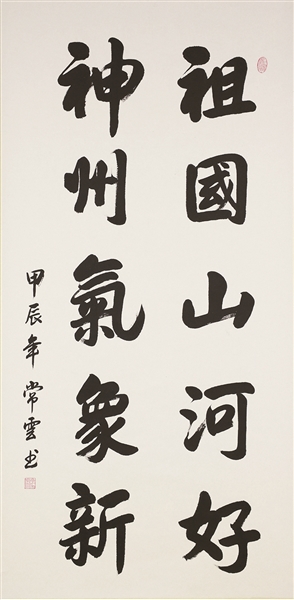 祖國山河好
神州氣象新
甲辰年常雲书